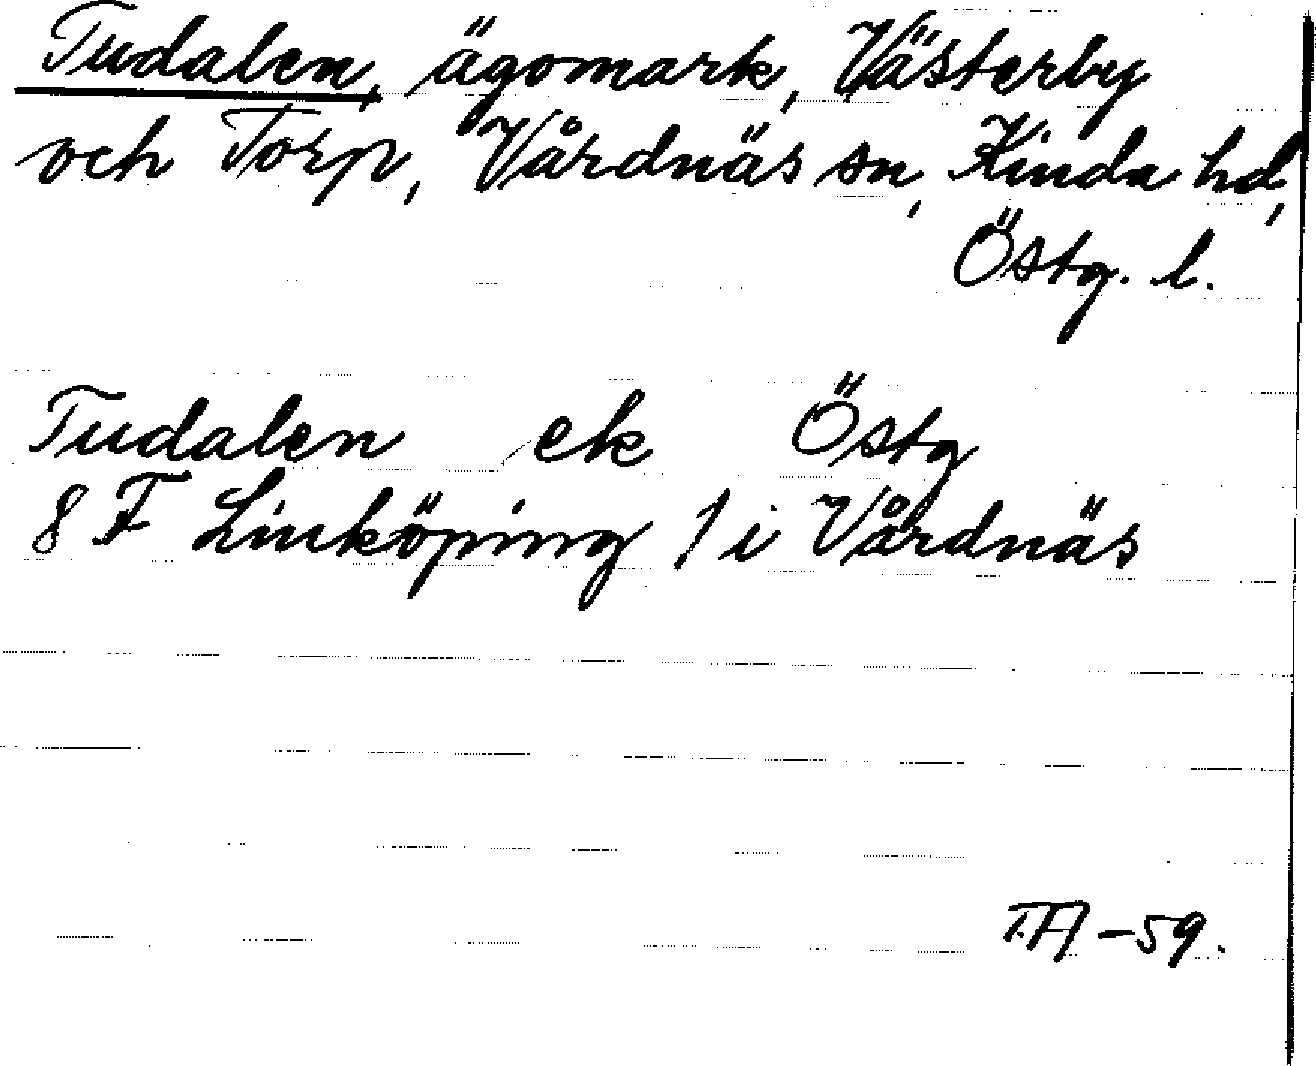 Tudalen, ägomark, Västerby
och Torp, Vårdnäs sn, Kinda hd,
Östg. l.
Tudalen ek Östg
8 F Linköping f i Vårdnäs
T.A -59.